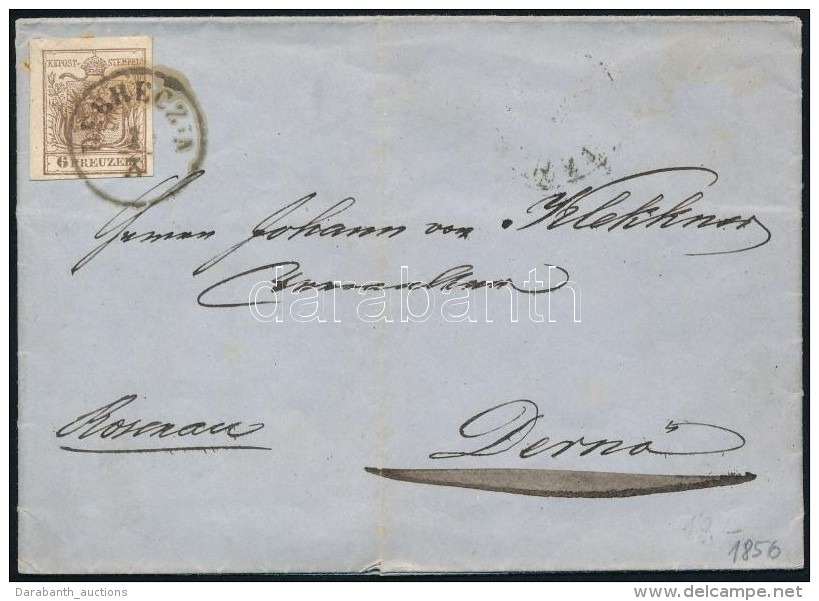 KKPOST-STEMPEL
6 KREUZER
DEBRECZIN
Herrn Johann von Klekkner
darabanth
Rosenau
Dernö
1856
Darabanth_auctions
www.delcampe.net